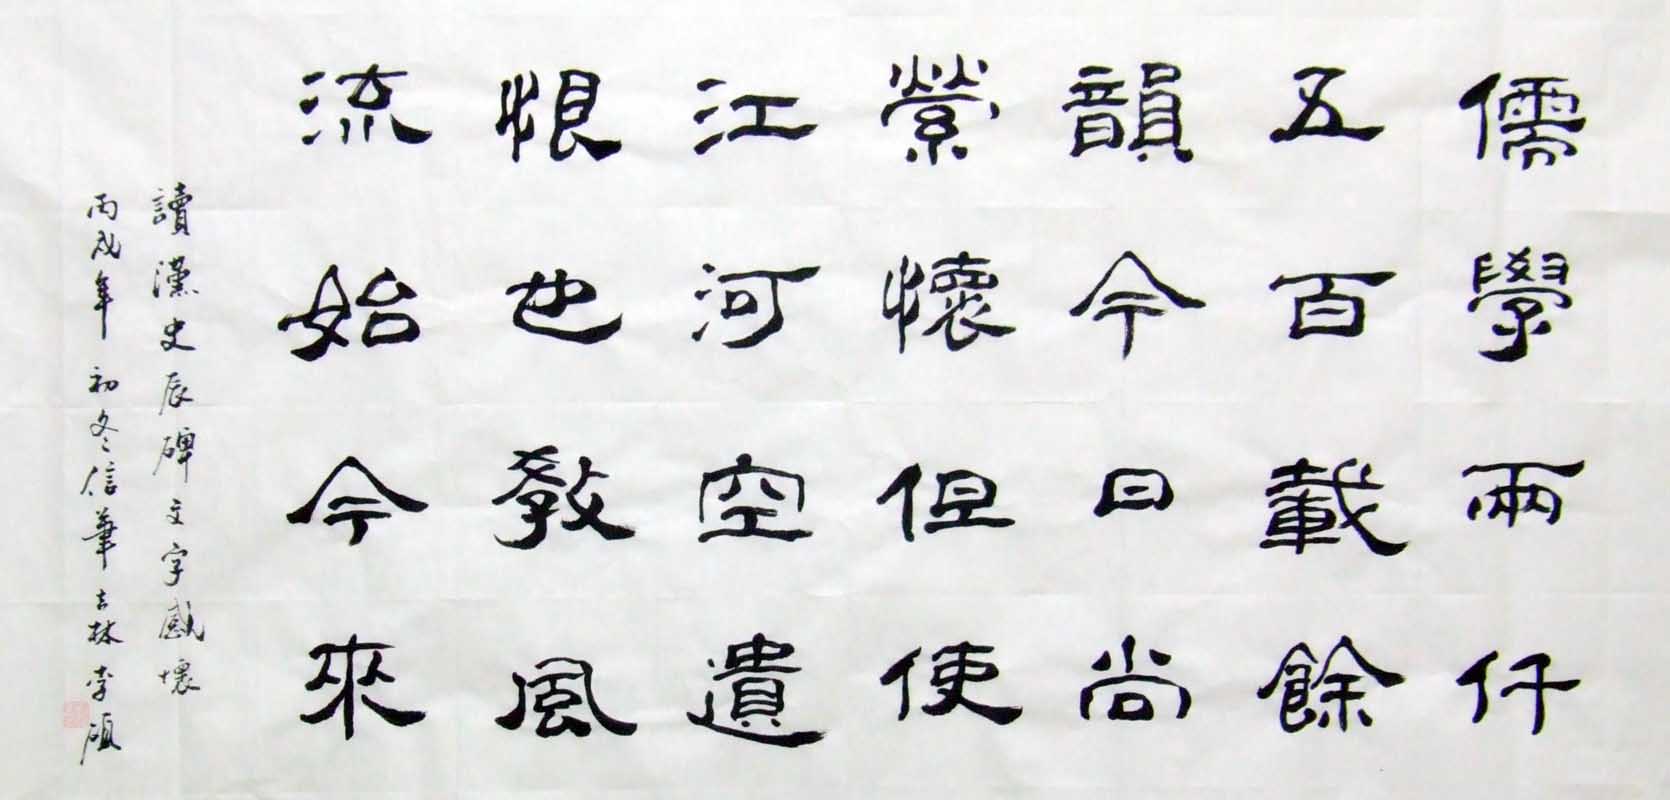 儒學兩仟
五百載餘
韻今日尚
縈懷但使
江河空遺
恨也教風
流始今來
讀漢史辰碑文字感懷
丙戌年初冬信筆吉林李碩